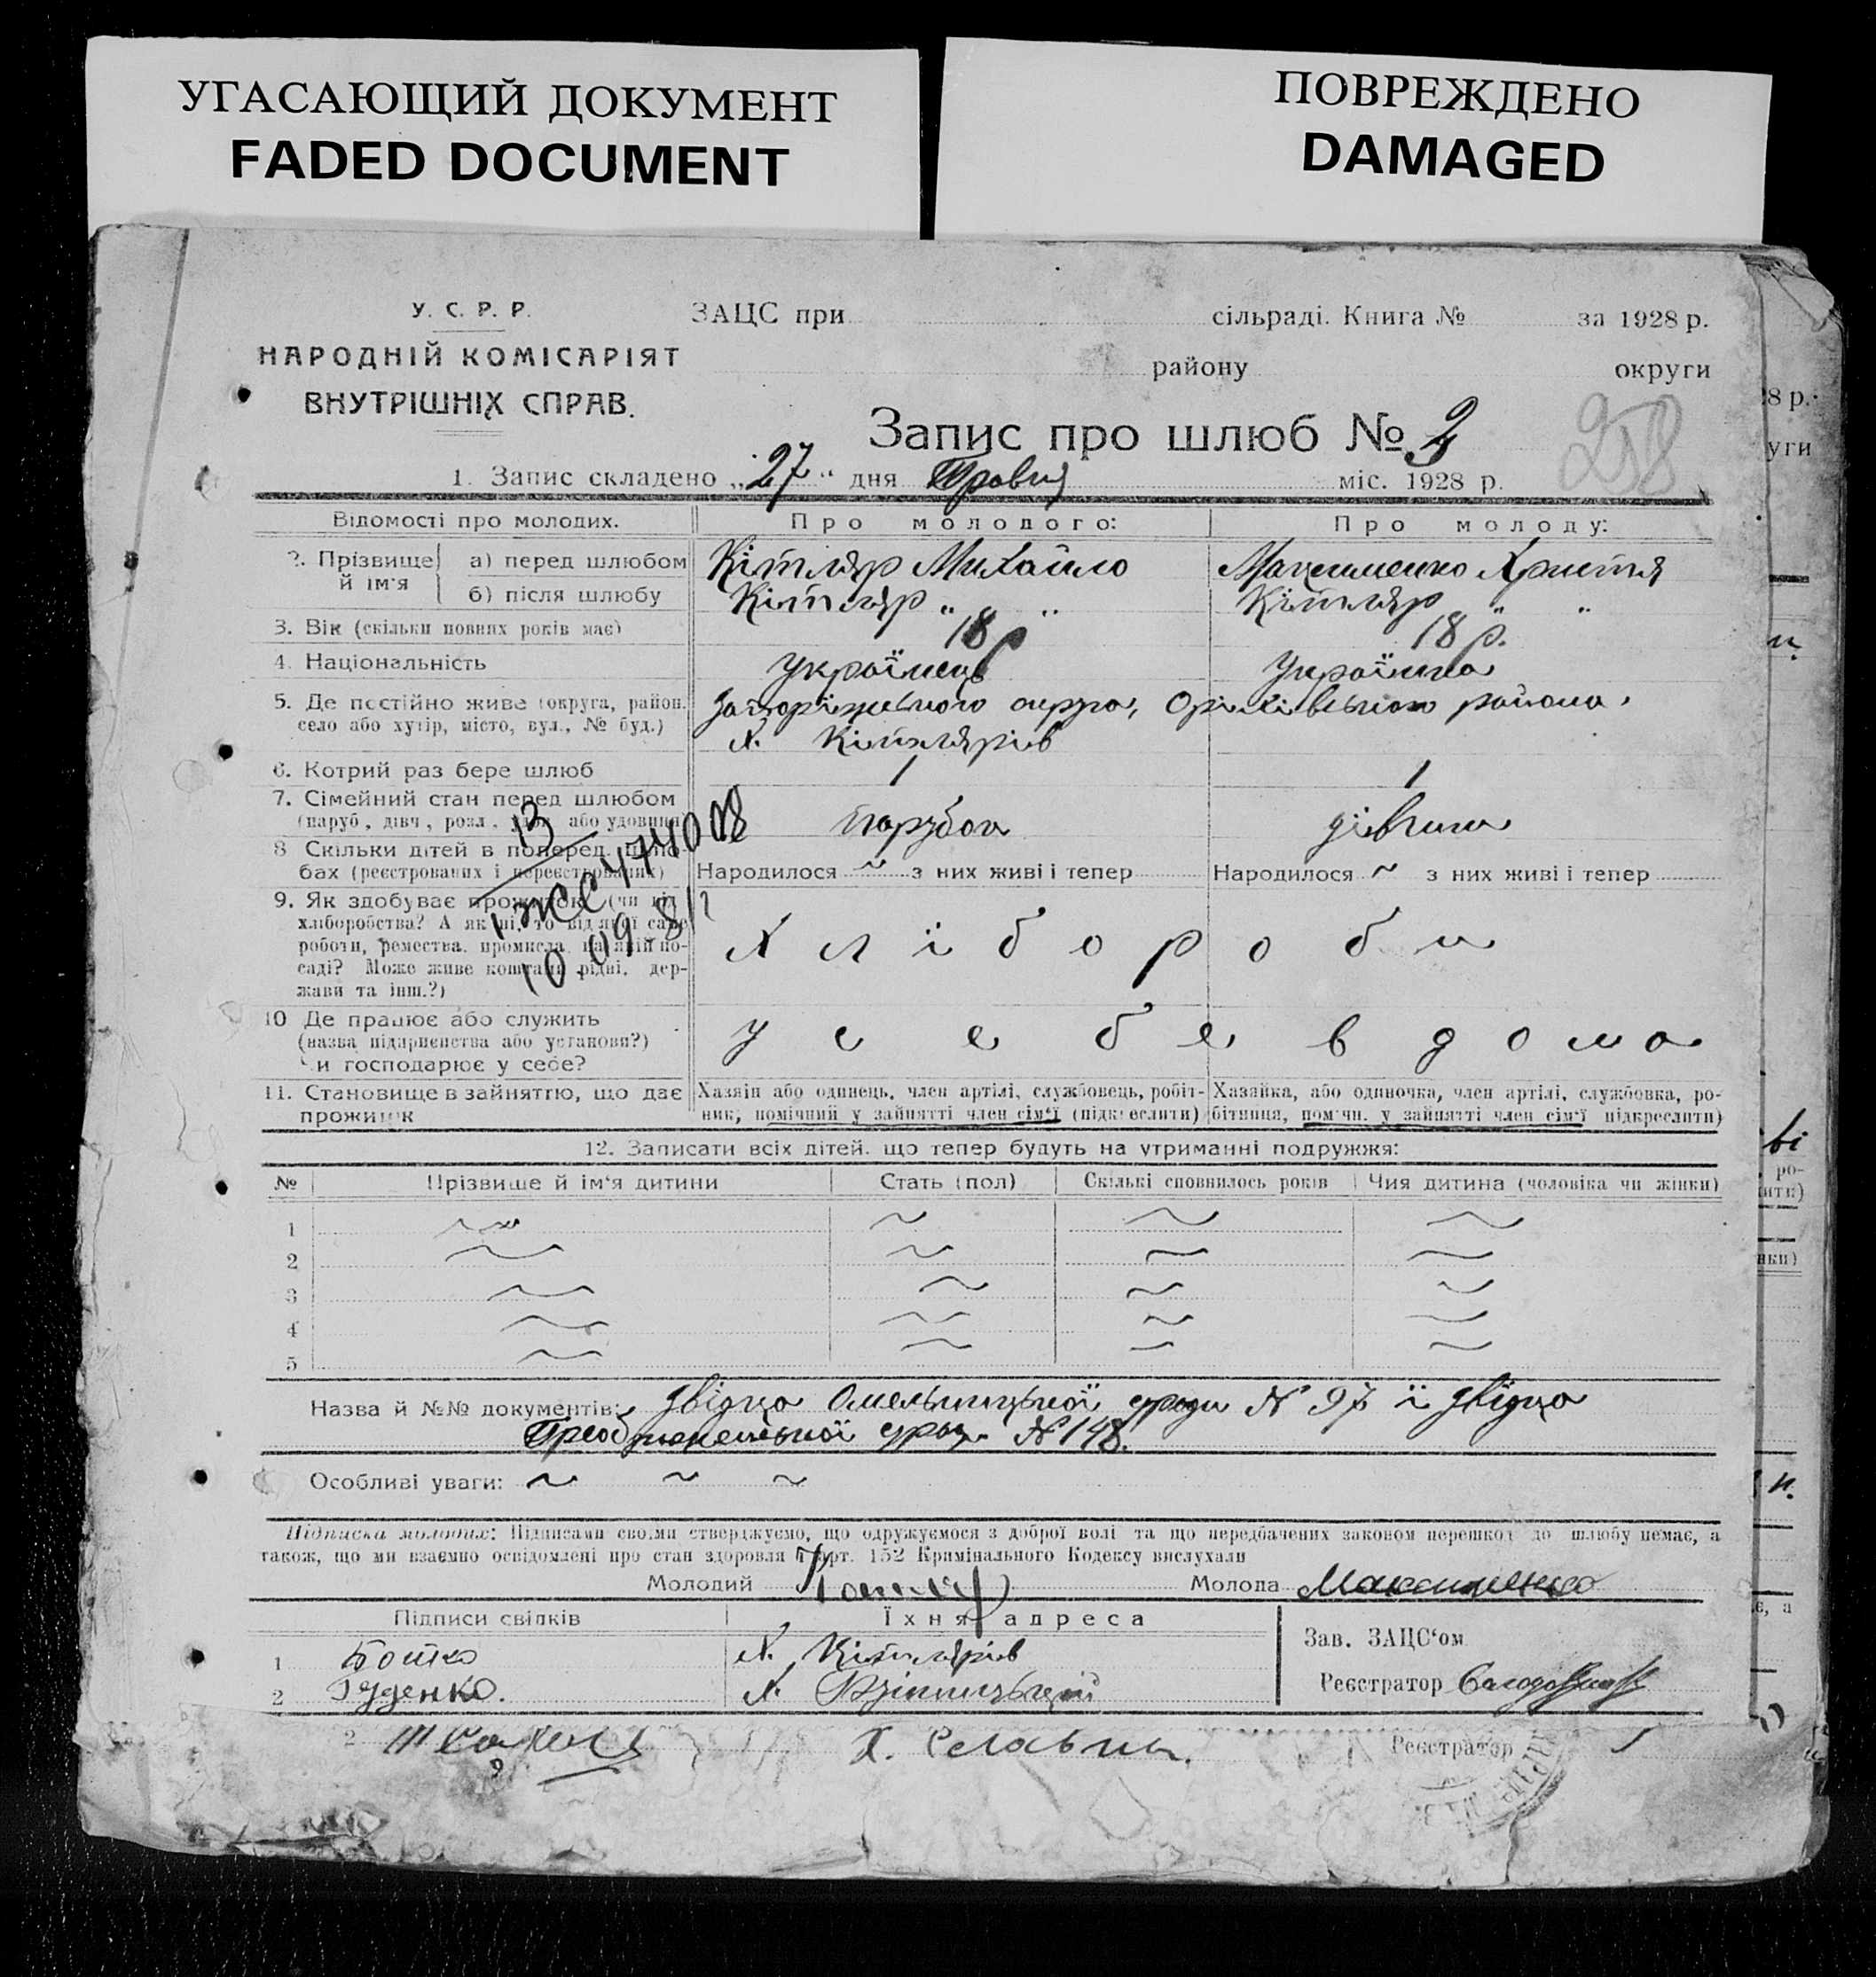 УГАСАЮЩИЙ ДОКУМЕНТ
FADED DOCUMENT
ПОВРЕЖДЕНО
DAMAGED
У. С. Р. Р.
НАРОДНІЙ КОМІСАРІЯТ
ВНУТРІШНІХ СПРАВ.
ЗАЦС при сільраді. Книга № за 1928 р.
району округи
Запис про шлюб № 3
258
1. Запис складено „27“ дня Травня міс. 1928 р.
Відомості про молодих. Про молодого: Про молоду:
2. Прізвище й ім'я а) перед шлюбом Кітляр Михайло Максименко Христя
б) після шлюбу Кітляр " " Кітляр " "
3. Вік (скільки повних років має) 18 р 18 р.
4. Національність Українець Українка
5. Де постійно живе (округа, район, Запоріжського округа, Оріхівського района,
село або хутір, місто, вул., № буд.) х. Кітлярів
6. Котрий раз бере шлюб 1 1
7. Сімейний стан перед шлюбом
(паруб., дівч., розл., або удовиця) парубок дівчина
8 Скільки дітей в поперед. шлю-
бах (реєстрованих і нереєстрованих) Народилося ~ з них живі і тепер Народилося ~ з них живі і тепер
9. Як здобуває прожиток (чи від
хліборобства? А як ні, то від якої саме
роботи, ремества, промисла, на якій по-
саді? Може живе коштами рідні, дер-
жави та інш.?)
Хлібороби
10 Де працює або служить
(назва підприємства або установи?)
Чи господарює у себе?
у себе в дома
11. Становище в зайняттю, що дає
прожиток
Хазяїн або одинець, член артілі, службовець, робіт-
ник, помічний у зайнятті член сім'ї (підкреслити)
Хазяйка, або одиночка, член артілі, службовка, ро-
бітниця, помічн. у зайнятті член сім'ї підкреслити)
12. Записати всіх дітей, що тепер будуть на утриманні подружжя:
№ Прізвище й ім'я дитини Стать (пол) Скількі сповнилось років Чия дитина (чоловіка чи жінки)
1
2
3
4
5
Назва й №№ документів: Двідка Омельницької сради № 97 і Двідка
Преображенської срад. № 148.
Особливі уваги: ~ ~ ~
Підписка молодих: Підписами своїми стверджуємо, що одружуємося з доброї волі та що передбачених законом перешкод до шлюбу немає, а
також, що ми взаємно освідомлені про стан здоровля і арт. 152 Кримінального Кодексу вислухали
Молодий Молода Максименко
Підписи свідків Їхня адреса
Зав. ЗАЦС'ом
1 Бойко х. Кітлярів
2 Руденко. х.
Реєстратор
2 Х.
Реєстратор